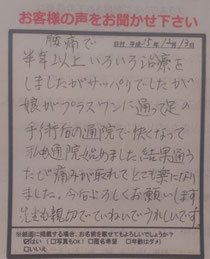 お客様の声をお聞かせ下さい
腰痛で 日付 平成 年 12月 13日
半年以上いろいろ治療を
しましたがサッパリでしたが
娘がプラスワンに通って足の
手術后の通院で快くなって
私も通院始めました。結果通う
たびに痛みが取れてとても楽になり
ました。今后よろしくお願いします
先生も親切でていねいでうれしいです。
※紙面に掲載する場合、お名前を載せてもよろしいでしょうか？
☑はい（□写真もOK！□匿名希望 □年齢はダメ）
□いいえ